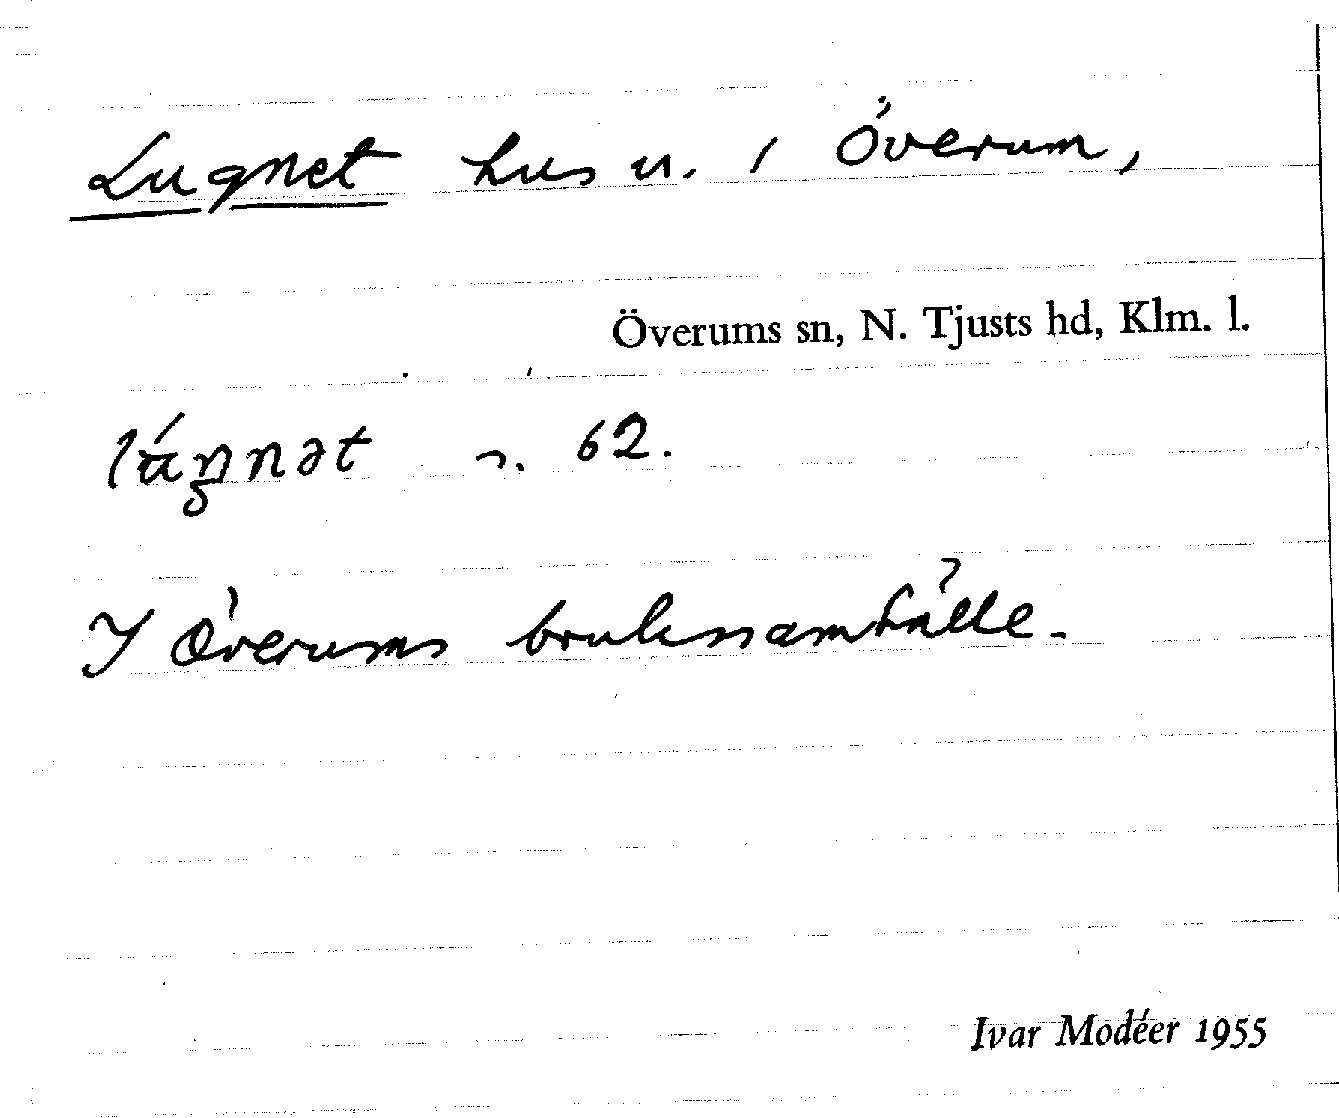 Lugnet hus u. / Överum,
Överums sn, N. Tjusts hd, Klm. l.
n. 62.
I Överums brukssamhälle.
Ivar Modéer 1955